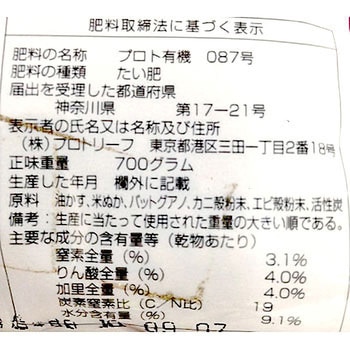 肥料取締法に基づく表示
肥料の名称 プロト有機 087号
肥料の種類 たい肥
届出を受理した都道府県
神奈川県 第17－21号
表示者の氏名又は名称及び住所
（株）プロトリーフ 東京都港区三田一丁目2番18号
正味重量 700グラム
生産した年月 欄外に記載
原料 油かす、米ぬか、バットグアノ、カニ殻粉末、エビ殻粉末、活性炭
備考：生産に当たって使用された重量の大きい順である。
主要な成分の含有量等（乾物あたり）
窒素全量（％） 3.1%
りん酸全量（％） 4.0%
加里全量（％） 4.0%
炭素窒素比（C／N比） 19
水分含有量（％） 9.1%